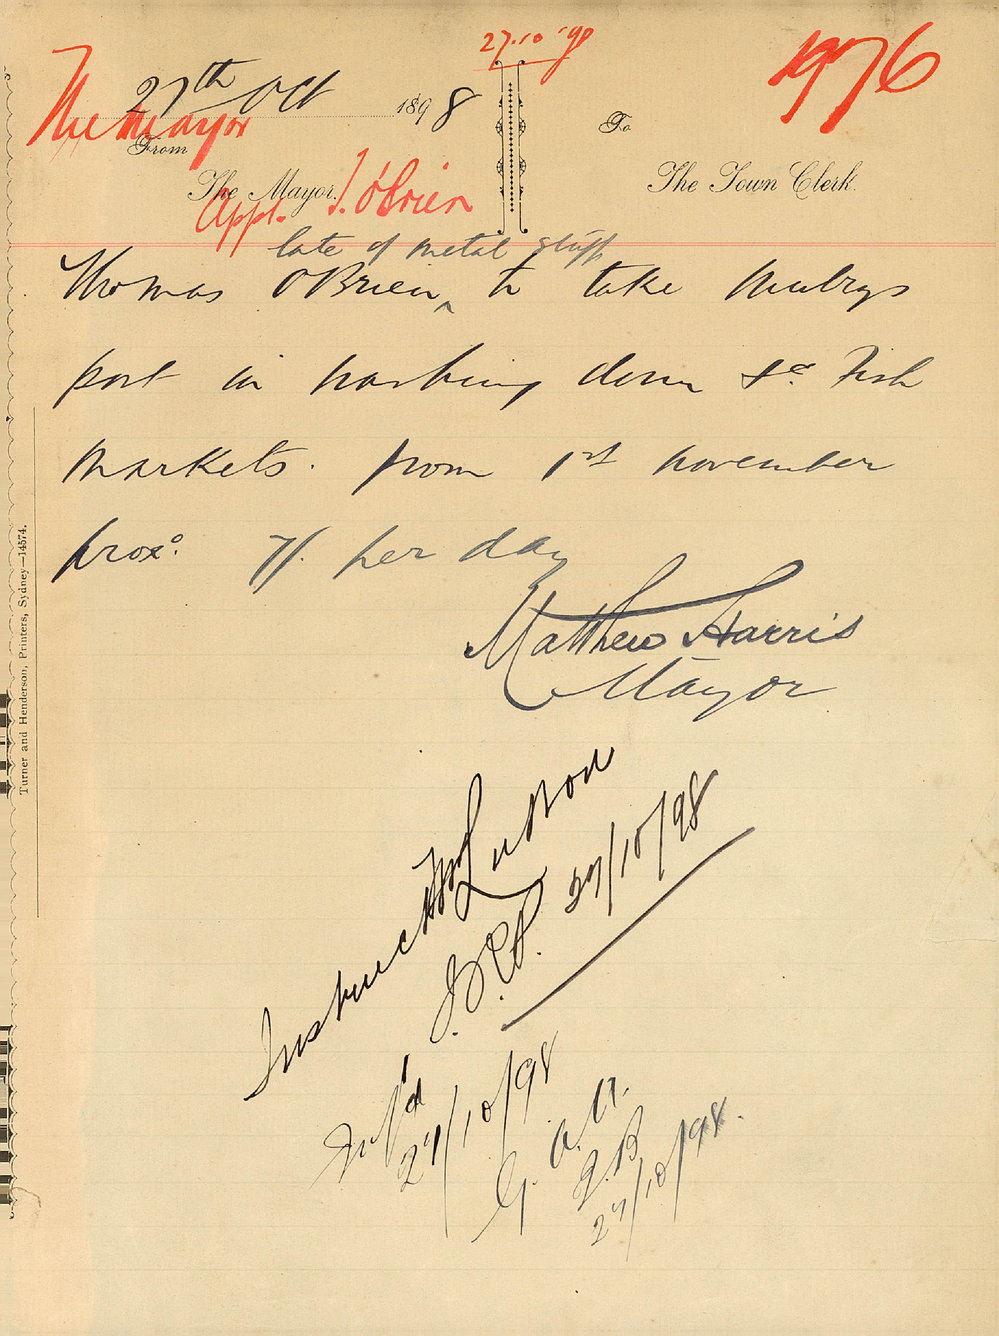 27.10.'98
1976
27th Oct 1898
The Mayor
From
To
The Mayor.
The Town Clerk.
Appt. T. O'Brien
late of metal stuff
Thomas O'Brien, ^ to take
part in washing down Fish
markets. from 1st november
proxo. 7/. per day
Matthew Harris
Mayor
Instruct Mr
27/10/98
Inf'd
27/10/98
27/10/98.
Turner and Henderson, Printers, Sydney—14574.